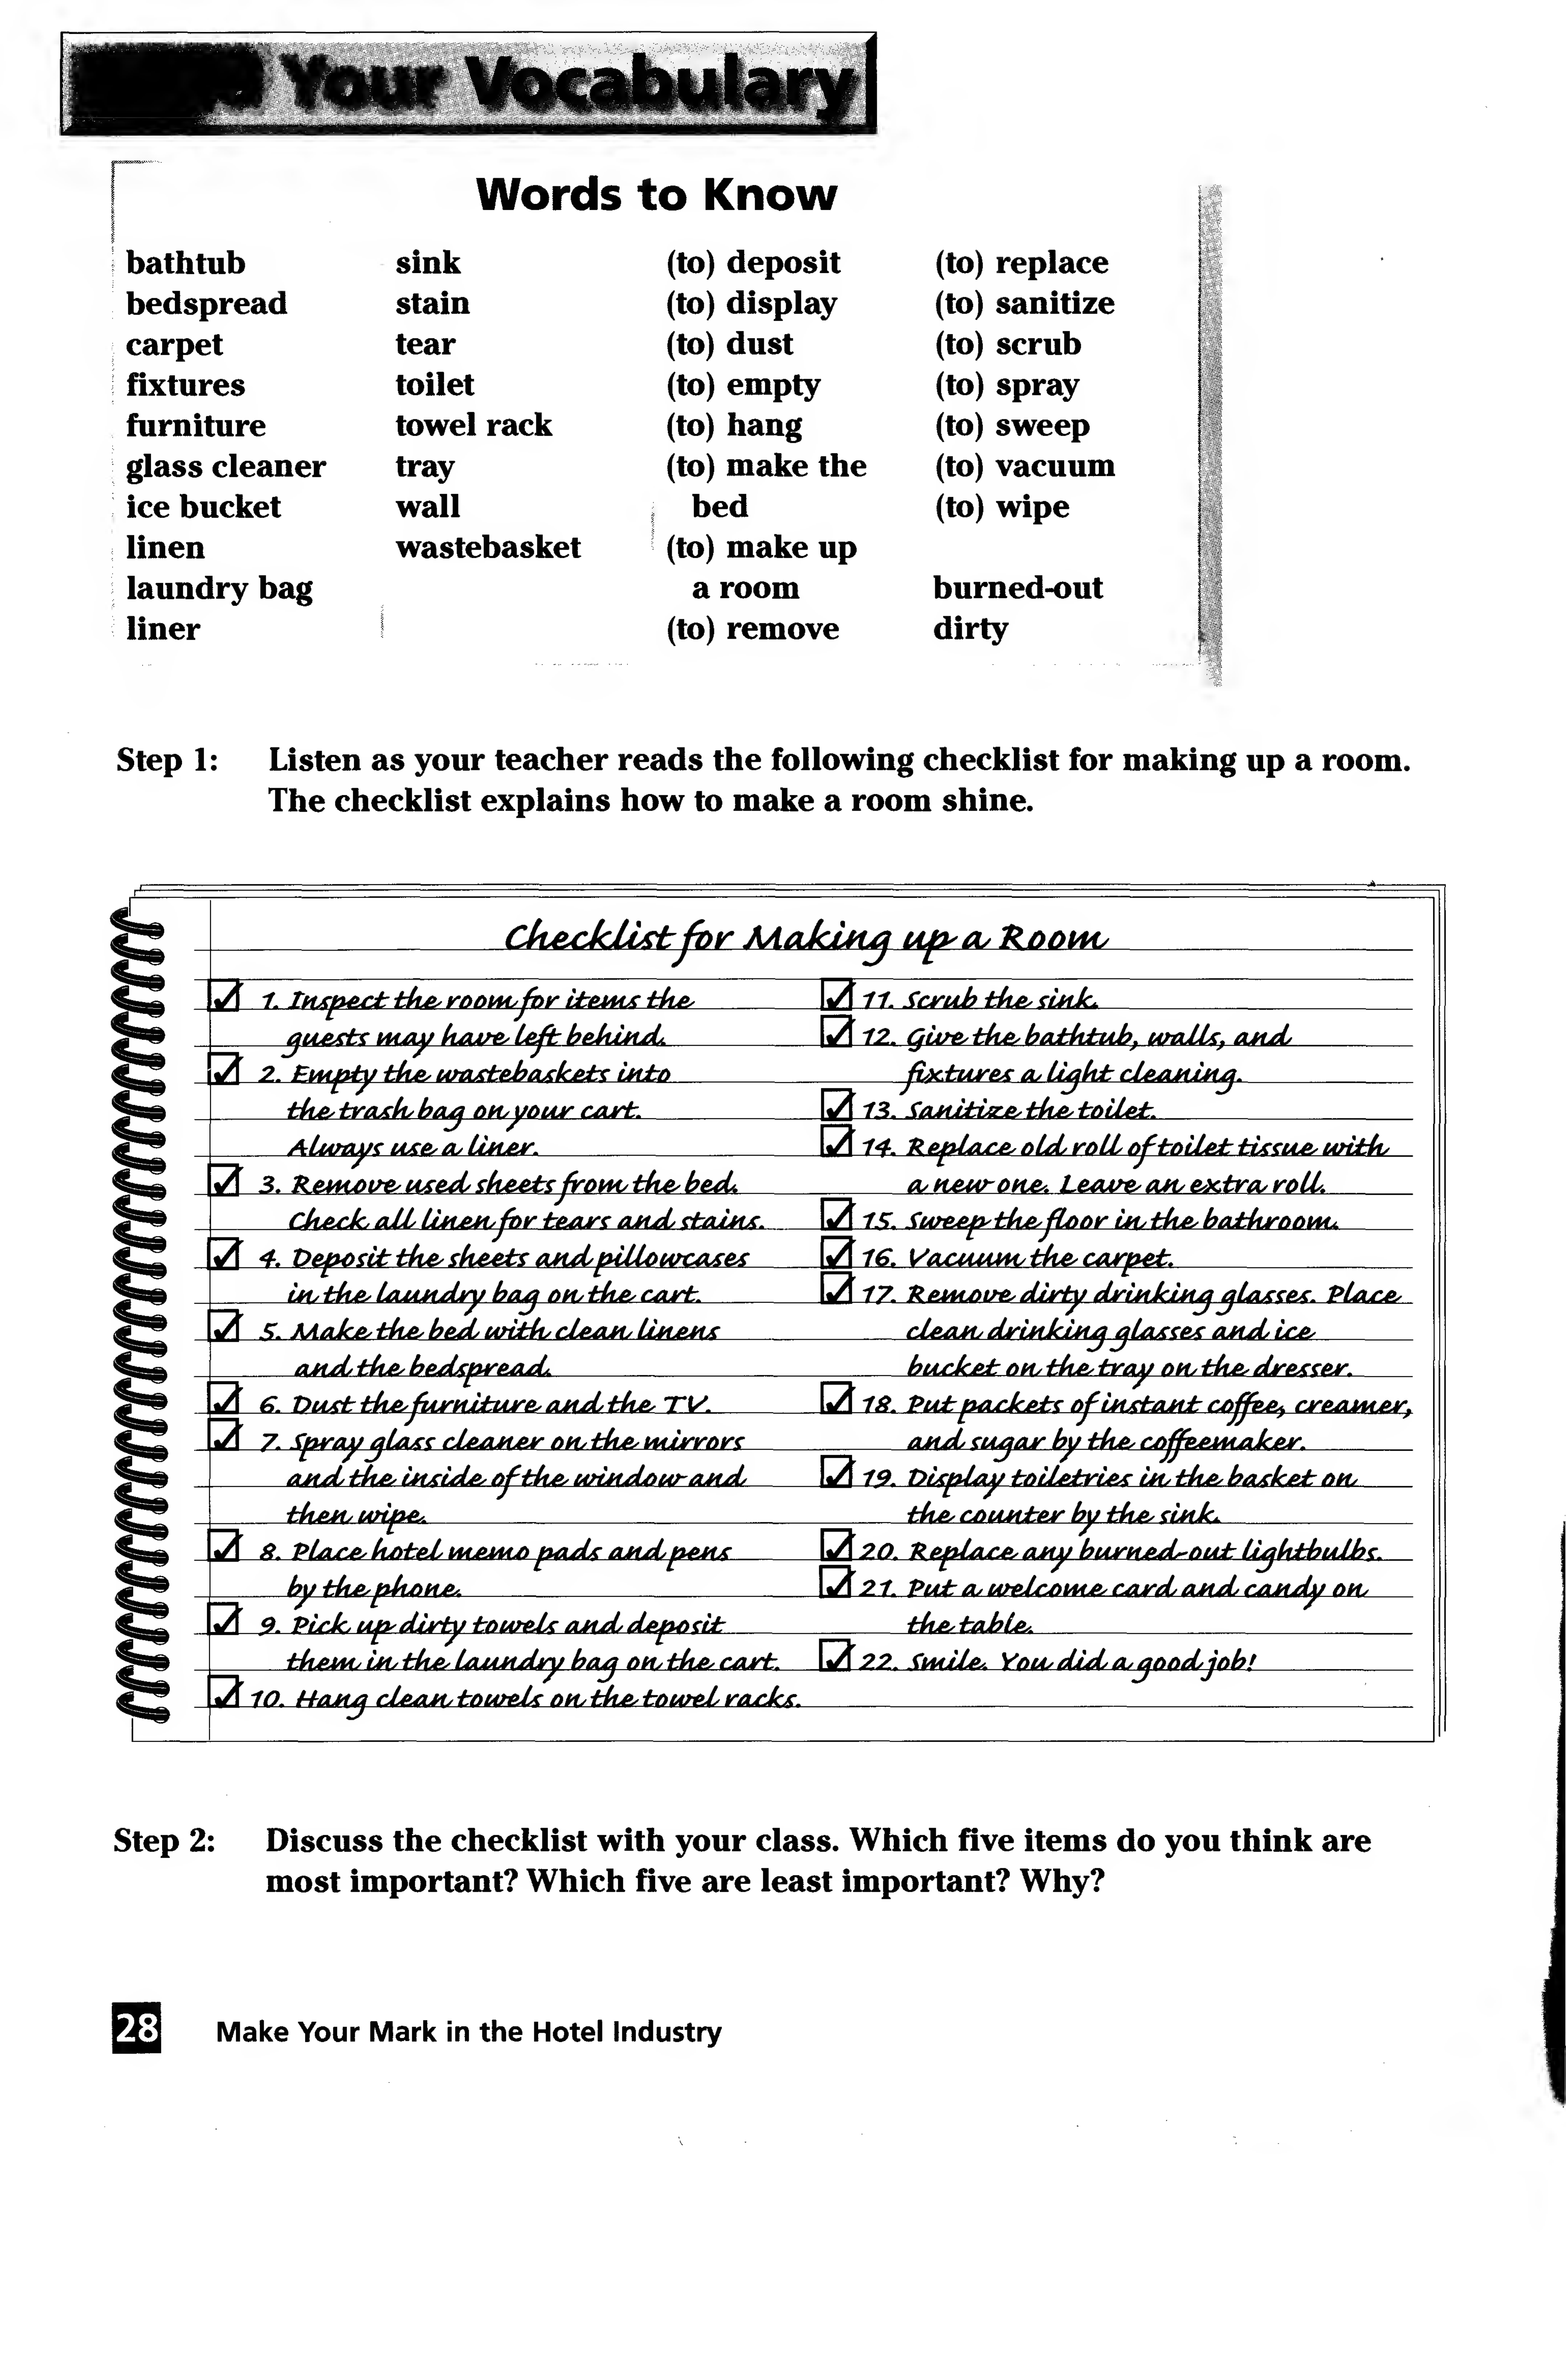 Your Vocabulary
Words to Know
bathtub
bedspread
carpet
fixtures
furniture
glass cleaner
ice bucket
linen
laundry bag
liner
sink
stain
tear
toilet
towel rack
tray
wall
wastebasket
(to) deposit
(to) display
(to) dust
(to) empty
(to) hang
(to) make the
bed
(to) make up
a room
(to) remove
(to) replace
(to) sanitize
(to) scrub
(to) spray
(to) sweep
(to) vacuum
(to) wipe
burned-out
dirty
Step 1: Listen as your teacher reads the following checklist for making up a room.
The checklist explains how to make a room shine.
Checklist for Making up a Room
1. Inspect the room for items the
guests may have left behind.
2. Empty the wastebaskets into
the trash bag on your cart.
Always use a liner.
3. Remove used sheets from the bed.
Check all linen for tears and stains.
4. Deposit the sheets and pillowcases
in the laundry bag on the cart.
5. Make the bed with clean linens
and the bedspread.
6. Dust the furniture and the TV.
7. Spray glass cleaner on the mirrors
and the inside of the window and
then wipe.
8. Place hotel memo pads and pens
by the phone.
9. Pick up dirty towels and deposit
them in the laundry bag on the cart.
10. Hang clean towels on the towel racks.
11. Scrub the sink.
12. Give the bathtub, walls, and
fixtures a light cleaning.
13. Sanitize the toilet.
14. Replace old roll of toilet tissue with
a new one. Leave an extra roll.
15. Sweep the floor in the bathroom.
16. Vacuum the carpet.
17. Remove dirty drinking glasses. Place
clean drinking glasses and ice
bucket on the tray on the dresser.
18. Put packets of instant coffee, creamer,
and sugar by the coffeemaker.
19. Display toiletries in the basket on
the counter by the sink.
20. Replace any burned-out lightbulbs.
21. Put a welcome card and candy on
the table.
22. Smile. You did a good job!
Step 2: Discuss the checklist with your class. Which five items do you think are
most important? Which five are least important? Why?
28 Make Your Mark in the Hotel Industry